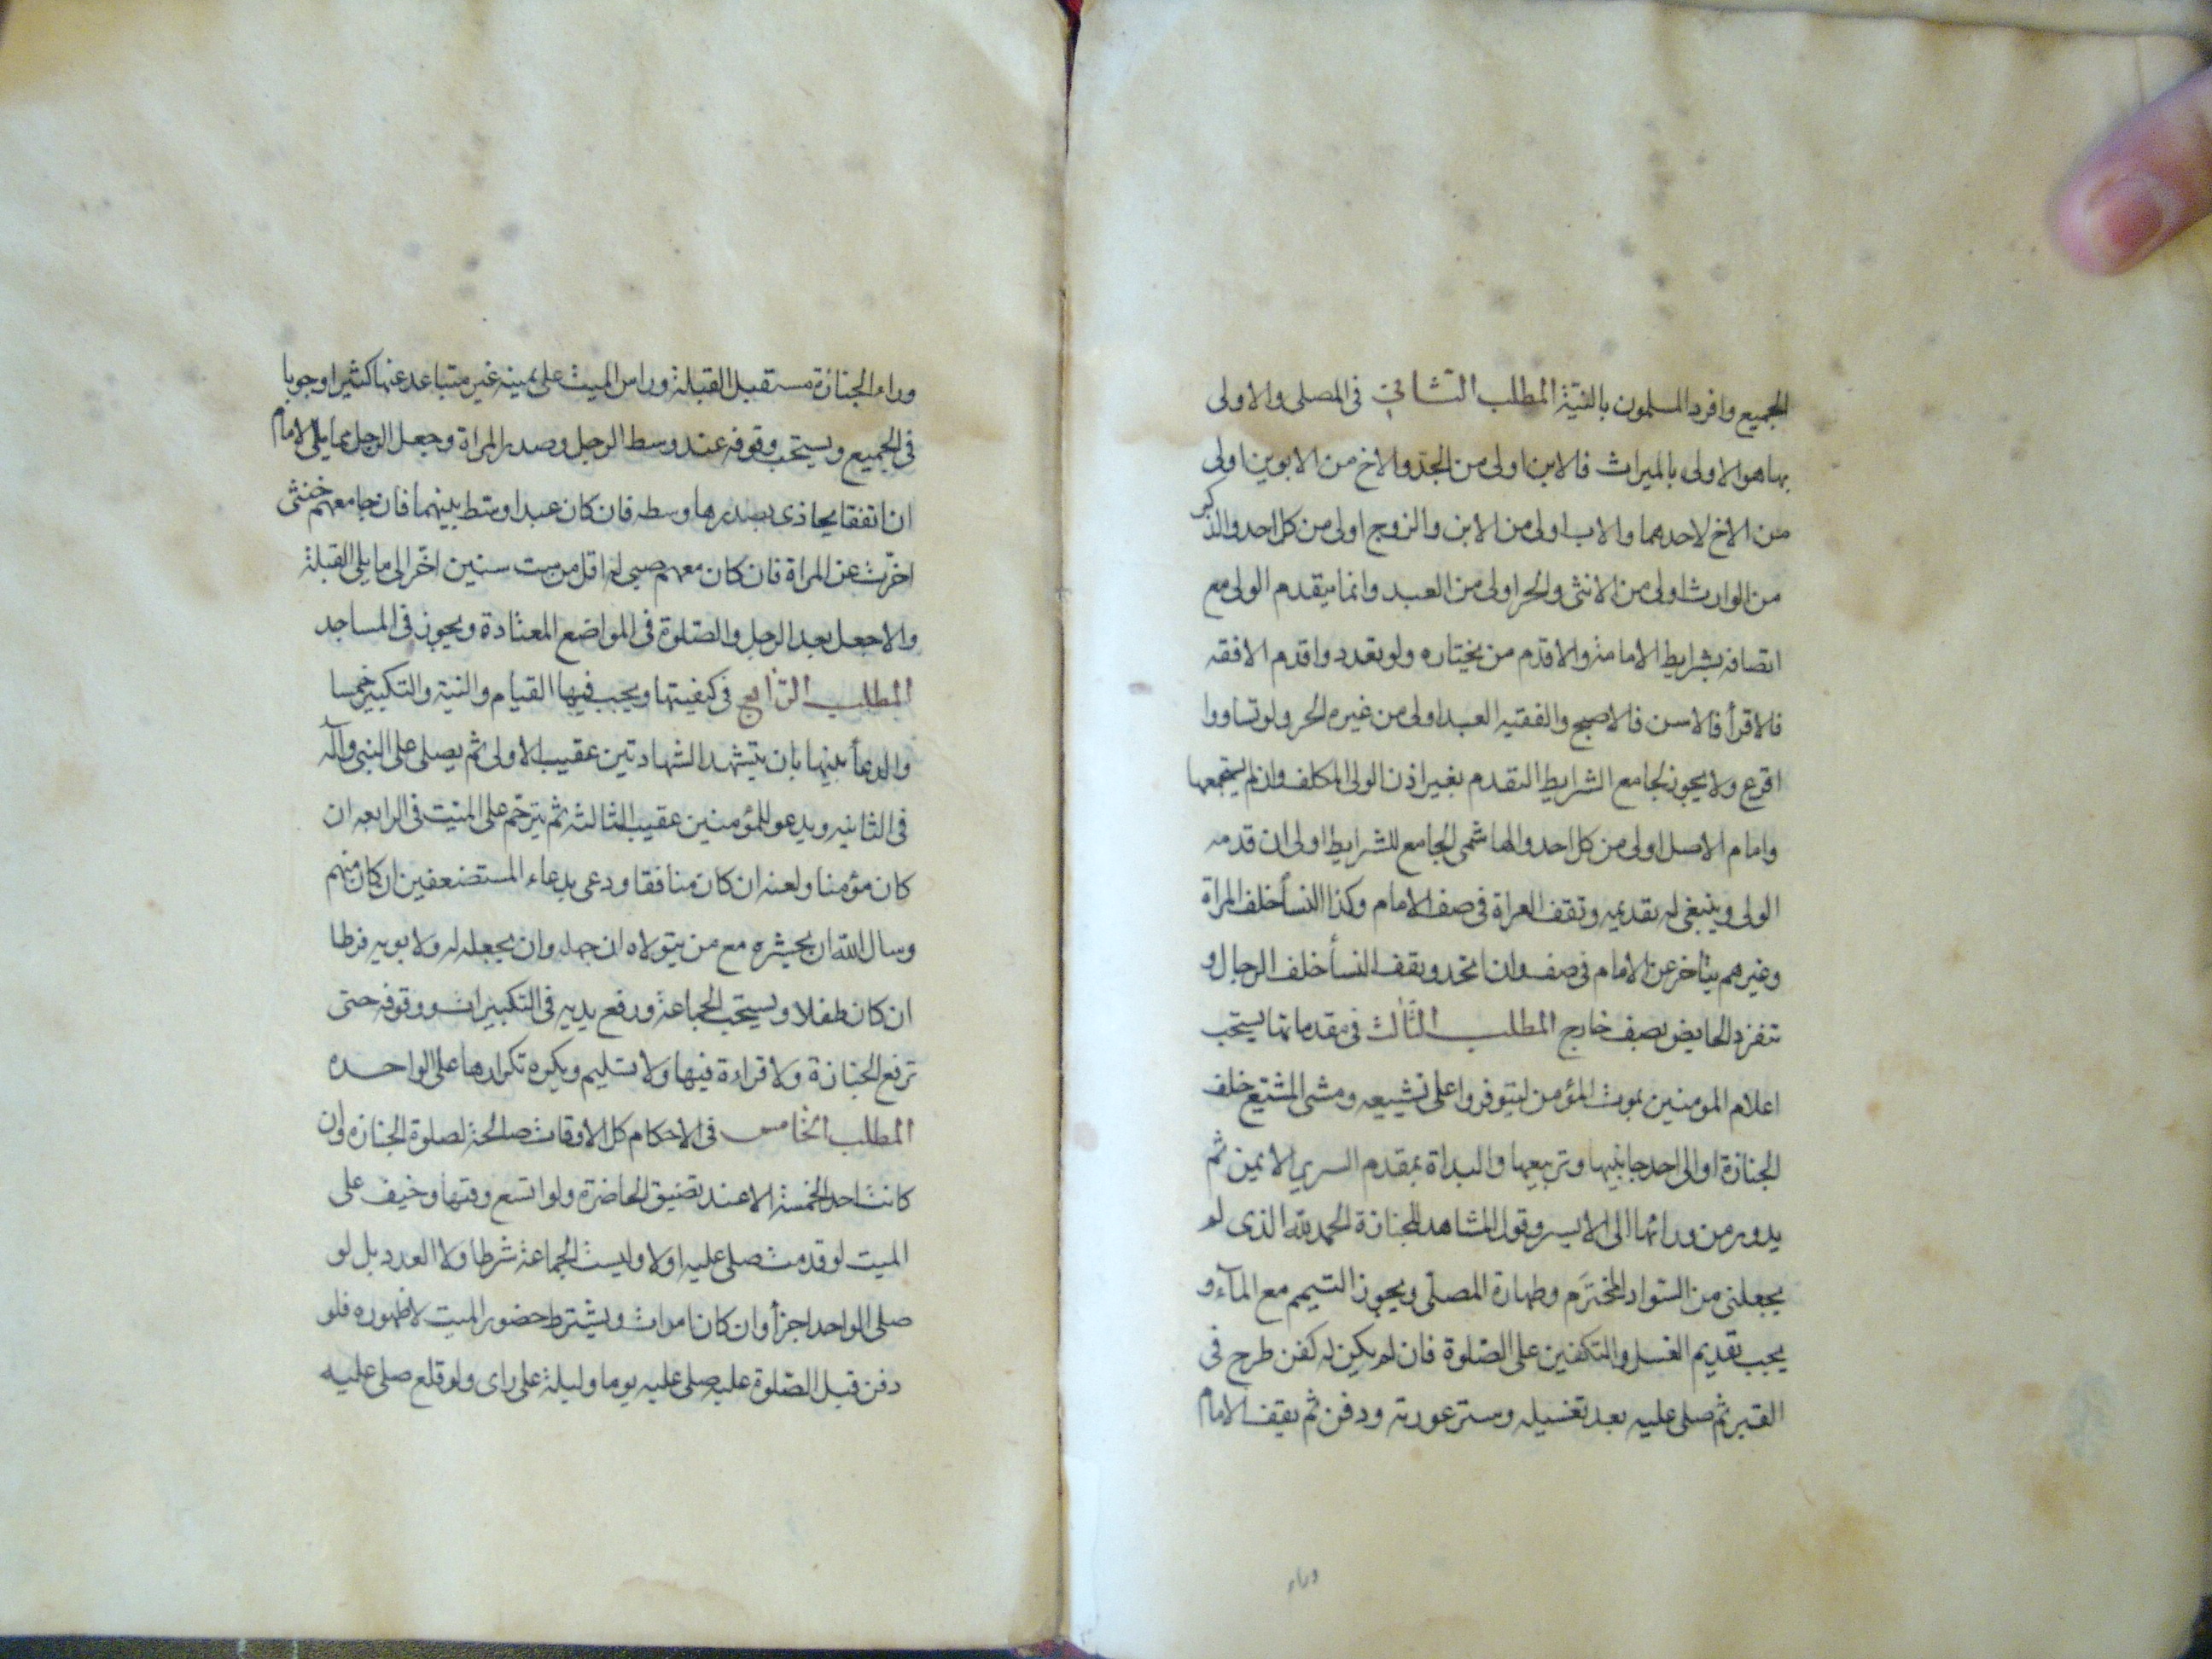 الجميع وافرد المسلمون بالنية المطلب الثاني فى المصلى والاولى
بها هو الاولى بالميراث فالابن اولى من الجد والاخ من الابوين اولى
من الاخ لاحدهما والاب اولى من الابن والزوج اولى من كل احد والذكر
من الوارث اولى من الانثى والحر اولى من العبد وانما يتقدم الولى مع
اتصافه بشرايط الامامة والا قدم من يختاره ولو تعددوا قدم الافقه
فالاقرأ فالاسن فالاصبح والفقيه العبد اولى من غيره الحر ولو تساووا
اقرع ولا يجوز لجامع الشرايط التقدم بغير اذن الولى المكلف وان لم يستجمعها
وامام الاصل اولى من كل احد والهاشمى الجامع للشرايط اولى ان قدمه
الولى وينبغى له تقديمه وتقف العراة فى صف الامام وكذا النسأ خلف المراة
وغيرهم يتأخر عن الامام فى صف وان اتحد ويقف النسأ خلف الرجال و
تنفرد الحايض بصف خارج المطلب الثالث فى مقدماتها يستحب
اعلام المومنين بموت المؤمن ليتوفروا على تشييعه ومشى المشيّع خلف
الجنازة او الى احد جانبيها وتربيعها والبداة بمقدم السرير الايمن ثم
يدور من ورائها الى الايسر وقول المشاهد للجنازة الحمد لله الذى لم
يجعلنى من السواد المخترم وطهارة المصلّى ويجوز التيمم مع المآء و
يجب تقديم الغسل والتكفين على الصّلوة فان لم يكن له كفن طرح فى
القبر ثم صلى عليه بعد تغسيله وستر عورته ودفن ثم يقف الامام
وراء
وراء الجنازة مستقبل القبلة وراس الميت على يمينه غير متباعد عنها كثيرا وجوبا
فى الجميع ويستحب وقوفه عند وسط الرجل وصدر المراة وجعل الرجل مما يلى الامام
ان اتفقا يحاذى بصدرها وسطه فان كان عبدا وسط بينهما فان جامعهم خنثى
اخرت عن المراة فان كان معهم صبى له اقل من ست سنين اخّر الى ما يلى القبلة
والا جعل بعد الرجل والصّلوة فى المواضع المعتادة ويجوز فى المساجد
المطلب الرّابع فى كيفيتها ويجب فيها القيام والنية والتكبير خمسا
والدعأ بينها بان يتشهد الشهادتين عقيب الاولى ثم يصلى على النبى وآله
فى الثانيه ويدعو للمؤمنين عقيب الثالثه ثم يترحّم على الميّت فى الرابعه ان
كان مؤمنا ولعنه ان كان منافقا ودعى بدعاء المستضعفين ان كان منهم
وسال الله ان يحشره مع من يتولاه ان جهله وان يجعله له ولابويه فرطا
ان كان طفلا ويستحب الجماعة ورفع يديه فى التكبيرات ووقوفه حتى
ترفع الجنازة ولا قراءة فيها ولا تسليم ويكره تكرارها على الواحده
المطلب الخامس فى الاحكام كل الاوقات صالحة لصلوة الجنازه وان
كانت احد الخمسة الا عند تضيق الحاضرة ولو اتسع وقتها وخيف على
الميت لو قدمت صلى عليه اولا وليست الجماعة شرطا ولا العدد بل لو
صلى الواحد اجزأ وان كان امراة ويشترط حضور الميت لا ظهوره فلو
دفن قبل الصّلوة عليه صلى عليه يوما وليلة على راى ولو قلع صلى عليه